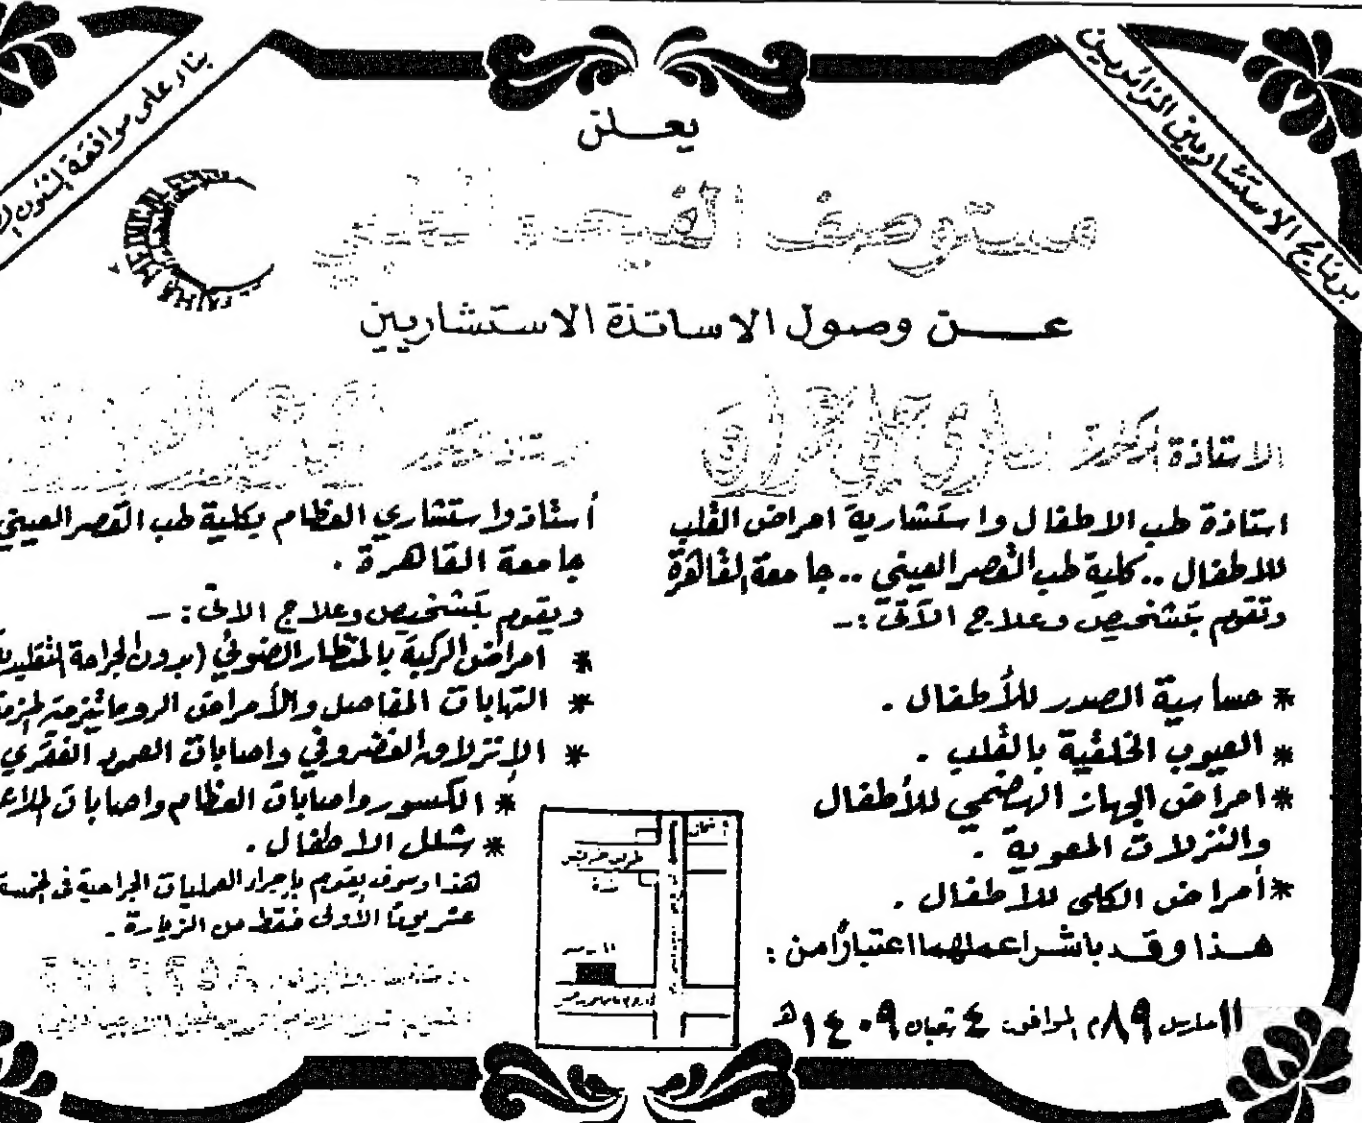 برنامج الاستشاريين الزائرين
بناء على موافقة الشئون
يعلن
مستوصف الفيحاء الطبي
عن وصول الاساتذة الاستشاريين
الاستاذة الدكتورة
استاذة طب الاطفال واستشارية امراض القلب
للاطفال .. كلية طب القصر العيني .. جامعة القاهرة
وتقوم بتشخيص وعلاج الآتى :ـ
* حساسية الصدر للأطفال .
* العيوب الخلقية بالقلب .
* امراض الجهاز الهضمي للأطفال
والنزلات المعوية .
* أمراض الكلى للأطفال .
هذا وقد باشرا عملهما اعتبارًا من :
١١ مارس ٨٩م الموافق ٤ شعبان ١٤٠٩هـ
أستاذ واستشاري العظام بكلية طب القصر العيني
جامعة القاهرة .
ويقوم بتشخيص وعلاج الاتى : ـ
* امراض الركبة بالمنظار الضوئي (بدون الجراحة التقليدية
* التهابات المفاصل والأمراض الروماتيزمية المزمنة
* الإنزلاق الغضروفي واصابات العمود الفقري
* الكسور واصابات العظام واصابات الملاعب
* شلل الاطفال .
هذا وسوف يقوم بإجراء العمليات الجراحية فى الخمسة
عشر يومًا الأولى فقط من الزيارة .